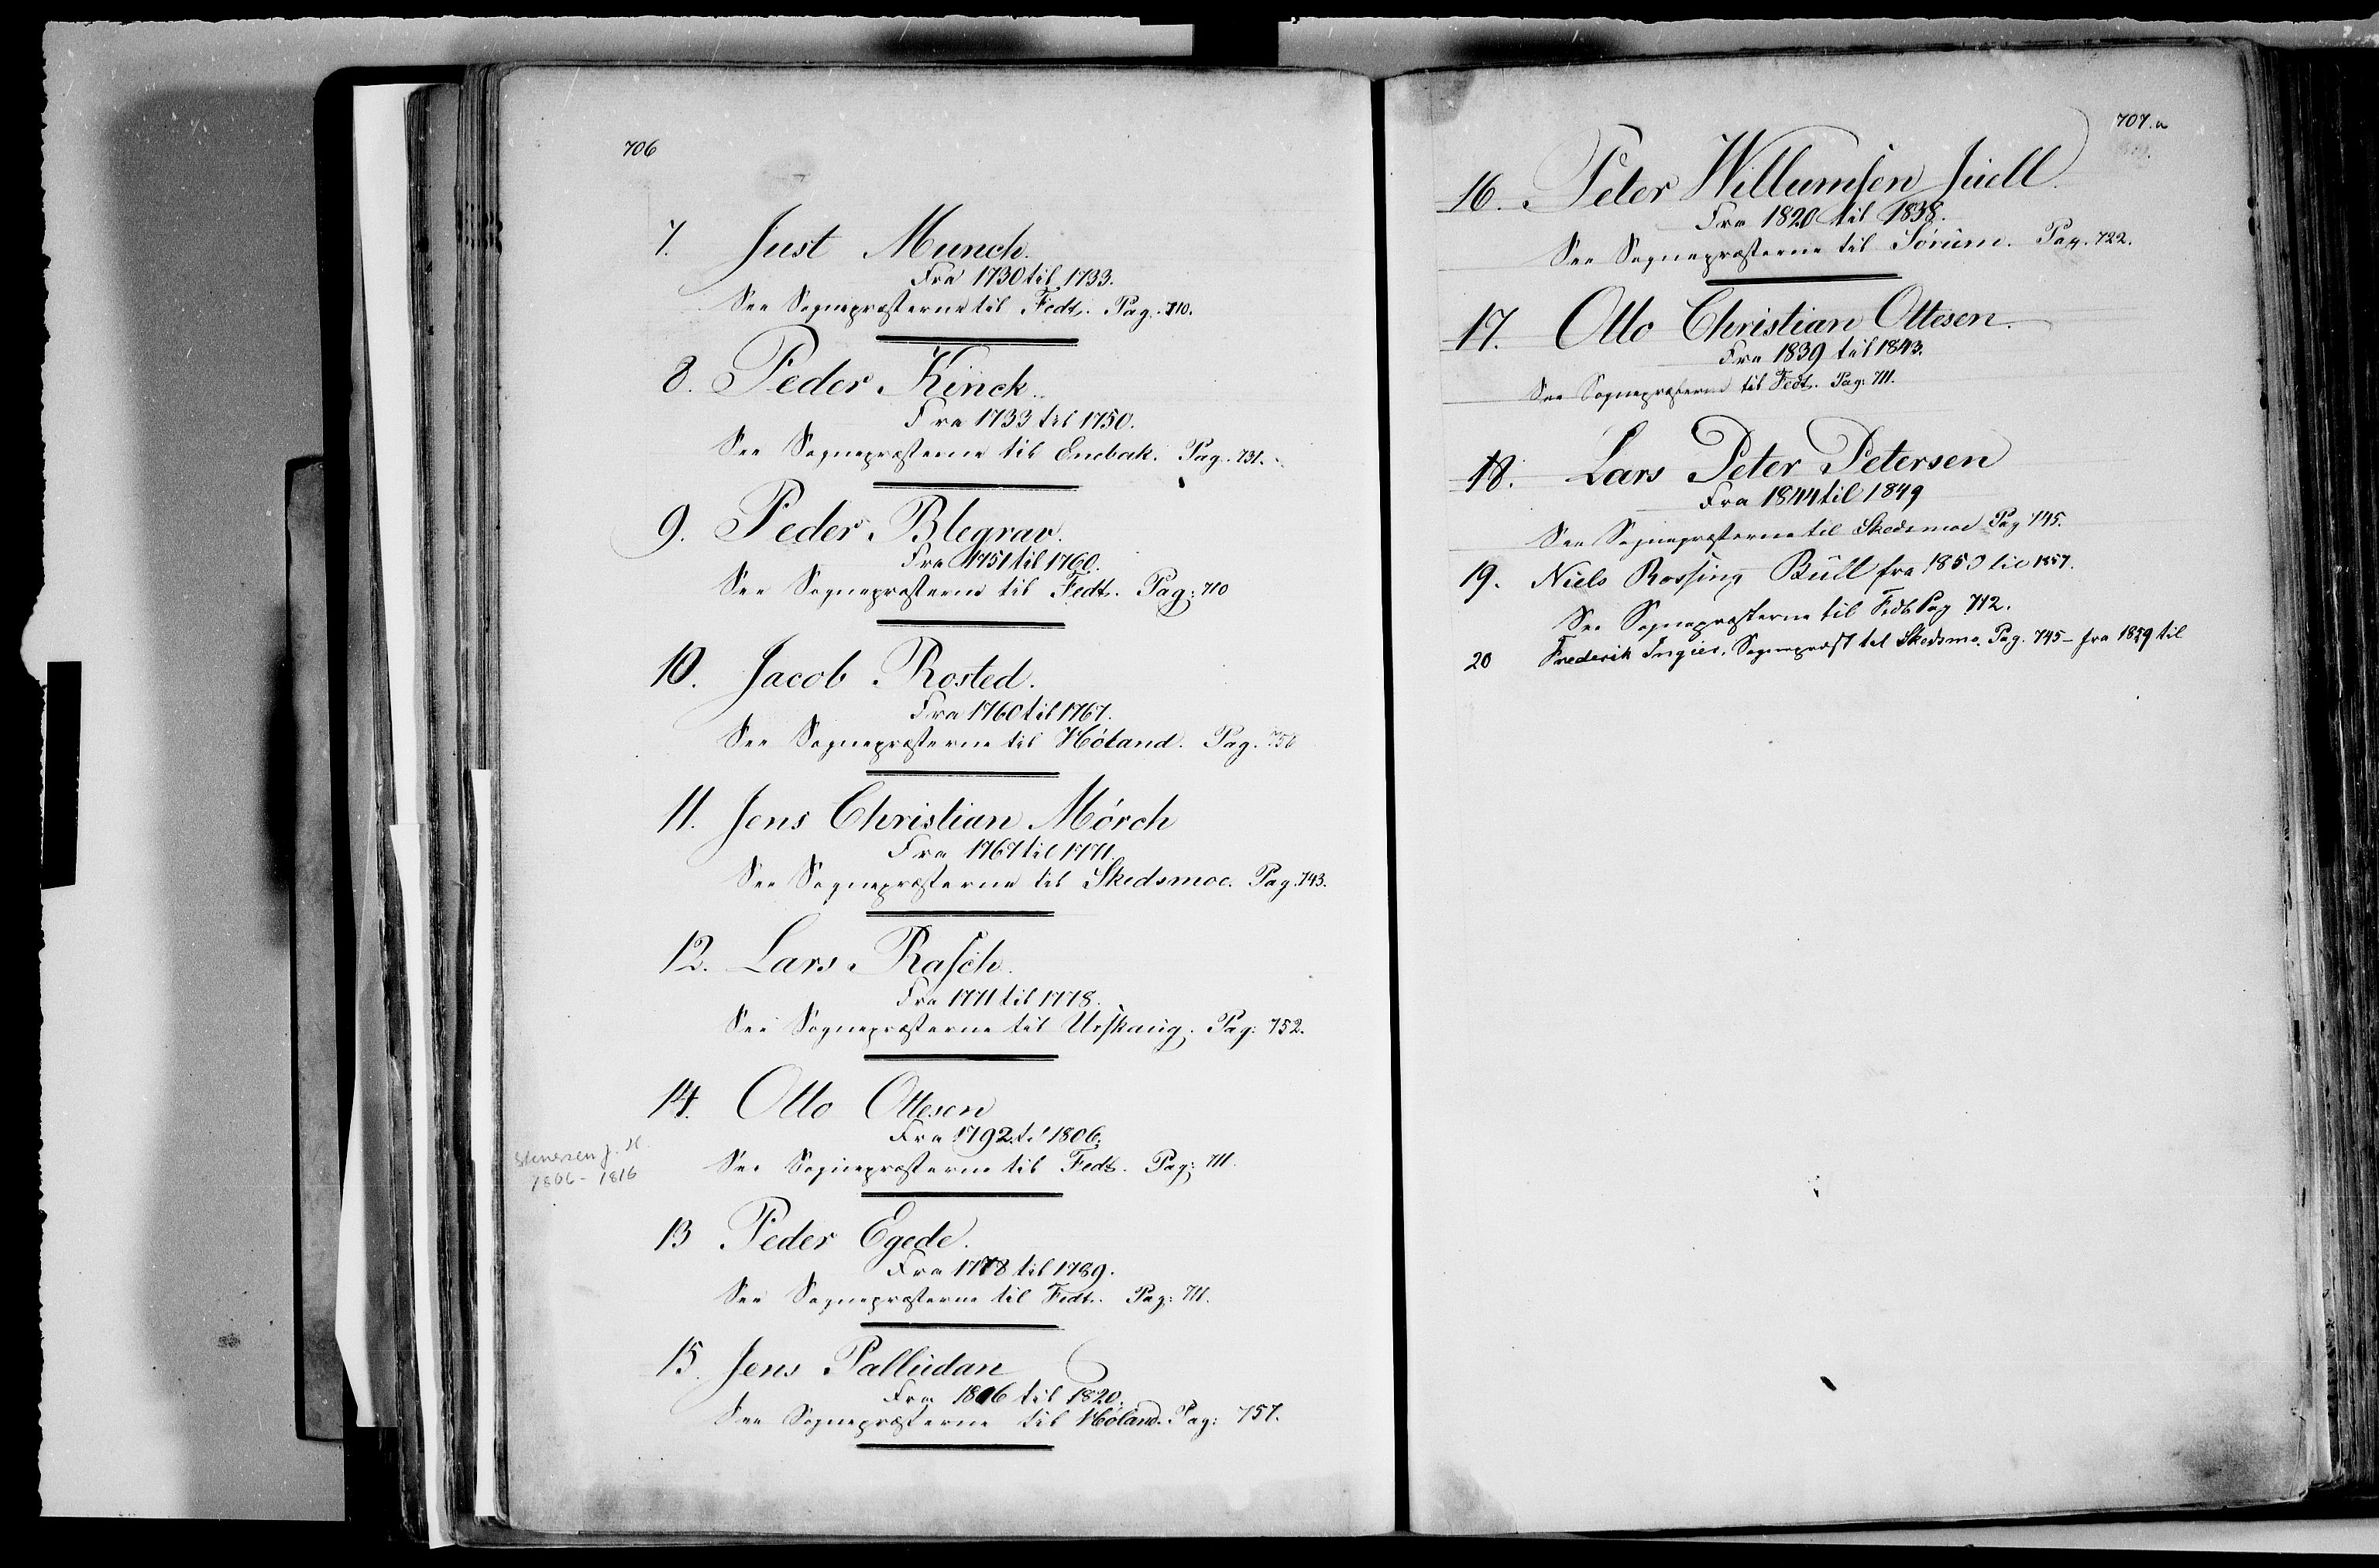 706
7. Just Munch.
Fra 1730 til 1733.
See Sognepræsterne til Fedt. Pag. 710.
8. Peder Kinck.
Fra 1733 til 1750.
See Sognepræsterne til Enebak. Pag. 731.
9. Peder Blegrav.
Fra 1751 til 1760.
See Sognepræsterne til Fedt. Pag: 710
10. Jacob Rosted.
Fra 1760 til 1767.
See Sognepræsterne til Höland. Pag.
11. Jens Christian Mörch
Fra 1767 til 1771.
See Sognepræsterne til Skedsmoe. Pag. 743.
12. Lars Rasch.
Fra 1771 til 1778.
See Sognepræsterne til Urskaug. Pag: 752.
14. Otto Ottesen
Fra 1792 til 1806.
Stenersen J. H.
1806 - 1816
See Sognepræsterne til Fedt. Pag: 711.
13 Peder Egede.
Fra 1778 til 1789.
See Sognepræsterne til Fedt. Pag: 711.
15. Jens Palludan
Fra 1816 til 1820.
See Sognepræsterne til Höland. Pag: 757.
707.a
16. Peter Willumsen Juell.
Fra 1820 til 1838.
See Sognepræsterne til Sörum. Pag. 722.
17. Otto Christian Ottesen.
Fra 1839 til 1843.
See Sognepræsterne til Fedt. Pag: 711.
18. Lars Peter Petersen
Fra 1844 til 1849
See Sognepræsterne til Skedsmoe Pag 745.
19. Niels Rossing Bull fra 1850 til 1857.
See Sognepræsterne til Fedt Pag 712.
20 Frederik Ingier, Sognepræst til Skedsmo. Pag. 745 - fra 1859 til